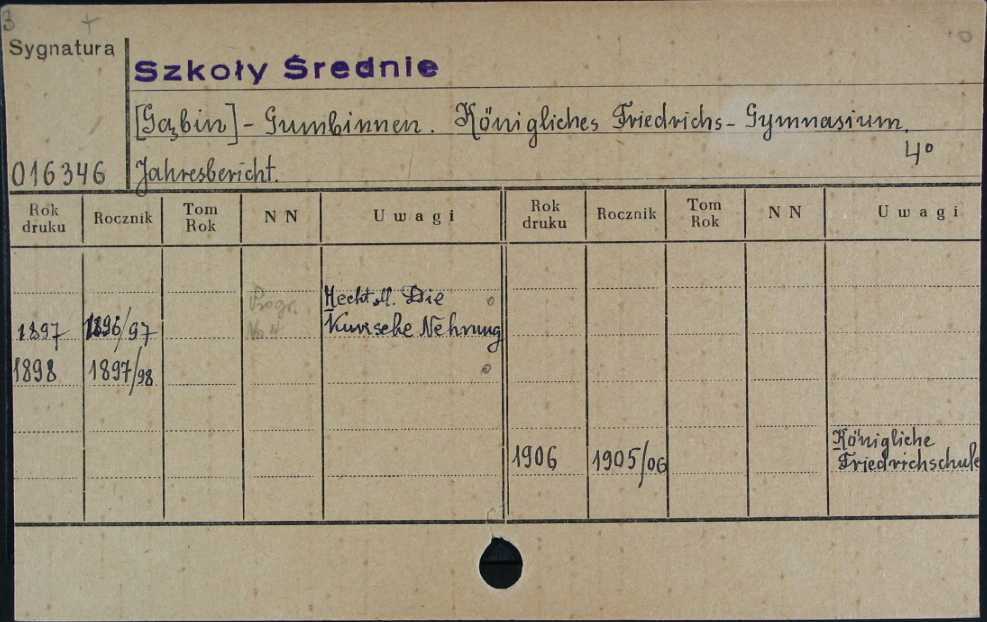 3 +
Sygnatura
Szkoły Średnie
[Gąbin] - Gumbinnen. Königliches Friedrichs-Gymnasium.
4°
016346 Jahresbericht.
Rok druku Rocznik Tom Rok NN Uwagi Rok druku Rocznik Tom Rok NN Uwagi
Progr. Hecht M. Die
1897 1896/97 No 4 Kurische Nehrung
1898 1897/98
Königliche
1906 1905/06 Friedrichschule